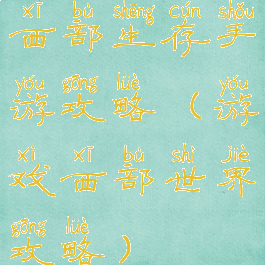 xī bù shēng cún shǒu
西部生存手
yóu gōng lüè yóu
游攻略（游
xì xī bù shì jiè
戏西部世界
gōng lüè
攻略）